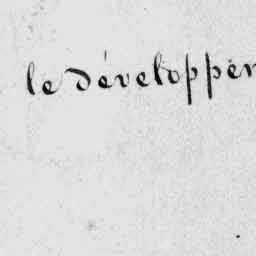 le développer